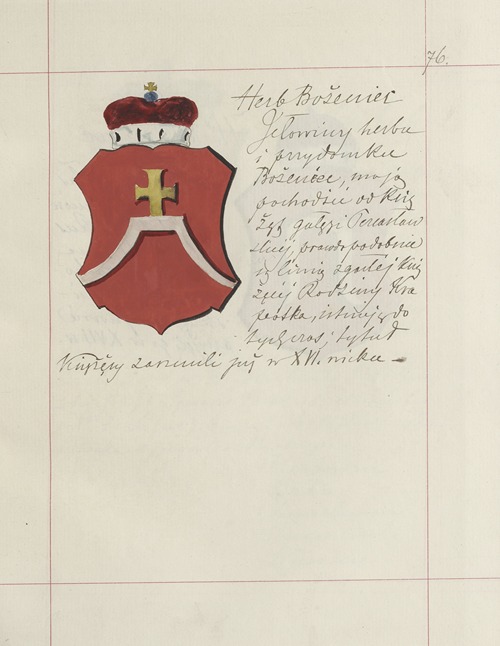 76.
Herb Bożeniec
Jełowiccy herbu
i przydomku
Bożeniec, mają
pochodzić od Ksią
żąt gałęzi Perejasław
skiej, prawdopodobnie
są linią zgasłej Ksią
żęcej Rodziny Kro
potka, istnieją do
tychczas; tytuł
Książęcy zarzucili już w XVI. wieku —